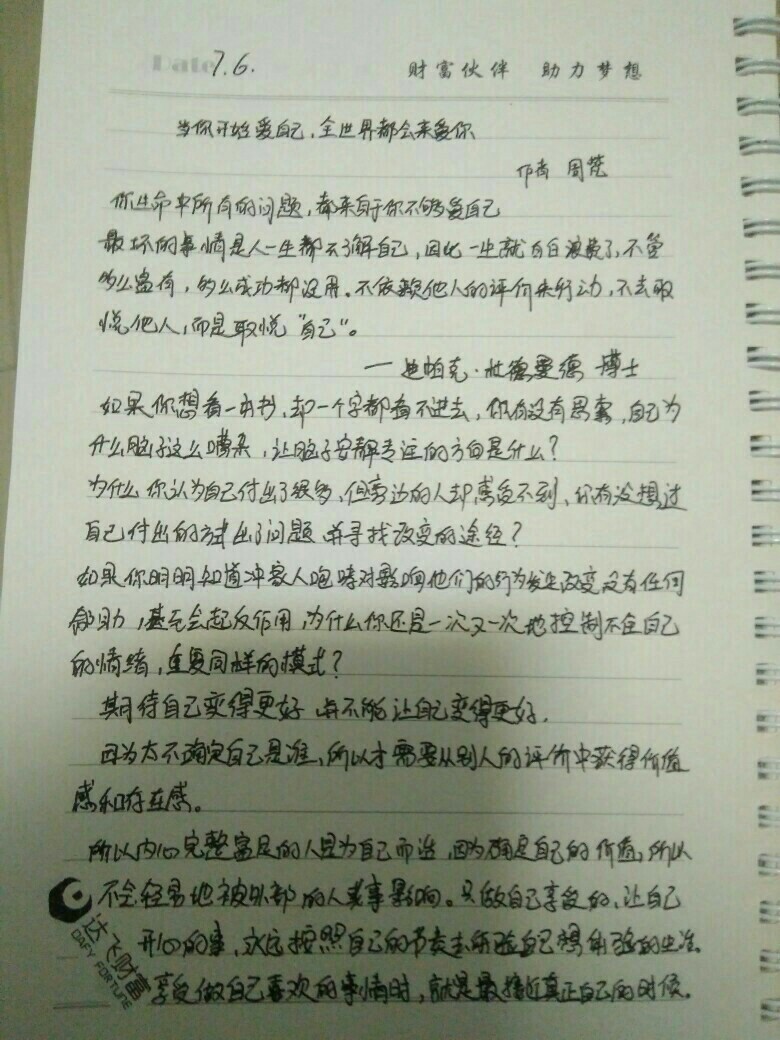 Date 7.6.
财富伙伴 助力梦想
当你开始爱自己,全世界都会来爱你
作者 周梵
你生命中所有的问题,都来自于你不够爱自己
最坏的事情是人一生都不了解自己,因此一生就白白浪费了,不管
多么富有,多么成功都没用。不依赖他人的评价来行动,不去取
悦他人,而是取悦“自己”。
——迪帕克·杜德曼德 博士
如果你想看一本书,却一个字都看不进去,你有没有思索,自己为
什么脑子这么嘈杂,让脑子安静专注的方向是什么?
为什么你认为自己付出了很多,但旁边的人却感受不到,你有没想过
自己付出的方式出了问题,并寻找改变的途径?
如果你明明知道冲家人咆哮对影响他们的行为发生改变没有任何
帮助,甚至会起反作用,为什么你还是一次又一次地控制不住自己
的情绪,重复同样的模式?
期待自己变得更好 并不能让自己变得更好.
因为太不确定自己是谁、所以才需要从别人的评价中获得价值
感和存在感。
所以内心完整富足的人是为自己而活,因为确定自己的价值,所以
不会轻易地被外部的人或事影响。只做自己享受的、让自己
开心的事,永远按照自己的节奏去体验自己想体验的生活.
享受做自己喜欢的事情时,就是最接近真正自己的时候.
达飞财富
DAFY FORTUNE